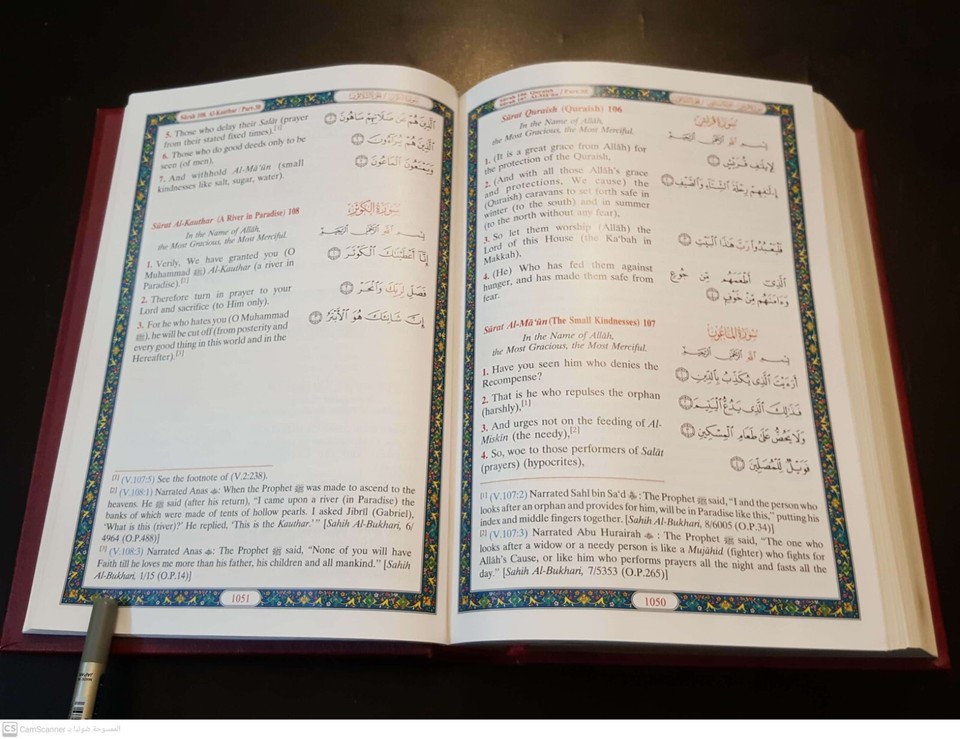 Sûrah 106. Quraish
Sûrah 107. Al-Mâ'ûn / Part-30
Sûrat Quraish (Quraish) 106
In the Name of Allâh,
the Most Gracious, the Most Merciful.
1. (It is a great grace from Allâh) for
the protection of the Quraish,
2. (And with all those Allâh's grace
and protections, We cause) the
(Quraish) caravans to set forth safe in
winter (to the south) and in summer
(to the north without any fear),
3. So let them worship (Allâh) the
Lord of this House (the Ka'bah in
Makkah),
4. (He) Who has fed them against
hunger, and has made them safe from
fear.
سورة قريش
بسم الله الرحمن الرحيم
لِإِيلَٰفِ قُرَيْشٍ ١
إِۦلَٰفِهِمْ رِحْلَةَ ٱلشِّتَآءِ وَٱلصَّيْفِ ٢
فَلْيَعْبُدُوا۟ رَبَّ هَٰذَا ٱلْبَيْتِ ٣
ٱلَّذِىٓ أَطْعَمَهُم مِّن جُوعٍ
وَءَامَنَهُم مِّنْ خَوْفٍۭ ٤
Sûrat Al-Mâ'ûn (The Small Kindnesses) 107
In the Name of Allâh,
the Most Gracious, the Most Merciful.
1. Have you seen him who denies the
Recompense?
2. That is he who repulses the orphan
(harshly),[1]
3. And urges not on the feeding of Al-
Miskîn (the needy),[2]
4. So, woe to those performers of Salât
(prayers) (hypocrites),
سورة الماعون
بسم الله الرحمن الرحيم
أَرَءَيْتَ ٱلَّذِى يُكَذِّبُ بِٱلدِّينِ ١
فَذَٰلِكَ ٱلَّذِى يَدُعُّ ٱلْيَتِيمَ ٢
وَلَا يَحُضُّ عَلَىٰ طَعَامِ ٱلْمِسْكِينِ ٣
فَوَيْلٌ لِّلْمُصَلِّينَ ٤
[1] (V.107:2) Narrated Sahl bin Sa'd : The Prophet ﷺ said, "I and the person who
looks after an orphan and provides for him, will be in Paradise like this," putting his
index and middle fingers together. [Sahih Al-Bukhari, 8/6005 (O.P.34)]
[2] (V.107:3) Narrated Abu Hurairah : The Prophet ﷺ said, "The one who
looks after a widow or a needy person is like a Mujâhid (fighter) who fights for
Allâh's Cause, or like him who performs prayers all the night and fasts all the
day." [Sahih Al-Bukhari, 7/5353 (O.P.265)]
1050
Sûrah 108. Al-Kauthar / Part-30
5. Those who delay their Salât (prayer
from their stated fixed times).[1]
6. Those who do good deeds only to be
seen (of men),
7. And withhold Al-Mâ'ûn (small
kindnesses like salt, sugar, water).
ٱلَّذِينَ هُمْ عَن صَلَاتِهِمْ سَاهُونَ ٥
ٱلَّذِينَ هُمْ يُرَآءُونَ ٦
وَيَمْنَعُونَ ٱلْمَاعُونَ ٧
Sûrat Al-Kauthar (A River in Paradise) 108
In the Name of Allâh,
the Most Gracious, the Most Merciful.
1. Verily, We have granted you (O
Muhammad ﷺ) Al-Kauthar (a river in
Paradise).[2]
2. Therefore turn in prayer to your
Lord and sacrifice (to Him only).
3. For he who hates you (O Muhammad
ﷺ), he will be cut off (from posterity and
every good thing in this world and in the
Hereafter).[3]
سورة الكوثر
بسم الله الرحمن الرحيم
إِنَّآ أَعْطَيْنَٰكَ ٱلْكَوْثَرَ ١
فَصَلِّ لِرَبِّكَ وَٱنْحَرْ ٢
إِنَّ شَانِئَكَ هُوَ ٱلْأَبْتَرُ ٣
[1] (V.107:5) See the footnote of (V.2:238).
[2] (V.108:1) Narrated Anas : When the Prophet ﷺ was made to ascend to the
heavens. He ﷺ said (after his return), "I came upon a river (in Paradise) the
banks of which were made of tents of hollow pearls. I asked Jibrîl (Gabriel),
'What is this (river)?' He replied, 'This is the Kauthar.' " [Sahih Al-Bukhari, 6/
4964 (O.P.488)]
[3] (V.108:3) Narrated Anas : The Prophet ﷺ said, "None of you will have
Faith till he loves me more than his father, his children and all mankind." [Sahih
Al-Bukhari, 1/15 (O.P.14)]
1051
CS CamScanner الممسوحة ضوئيا بـ